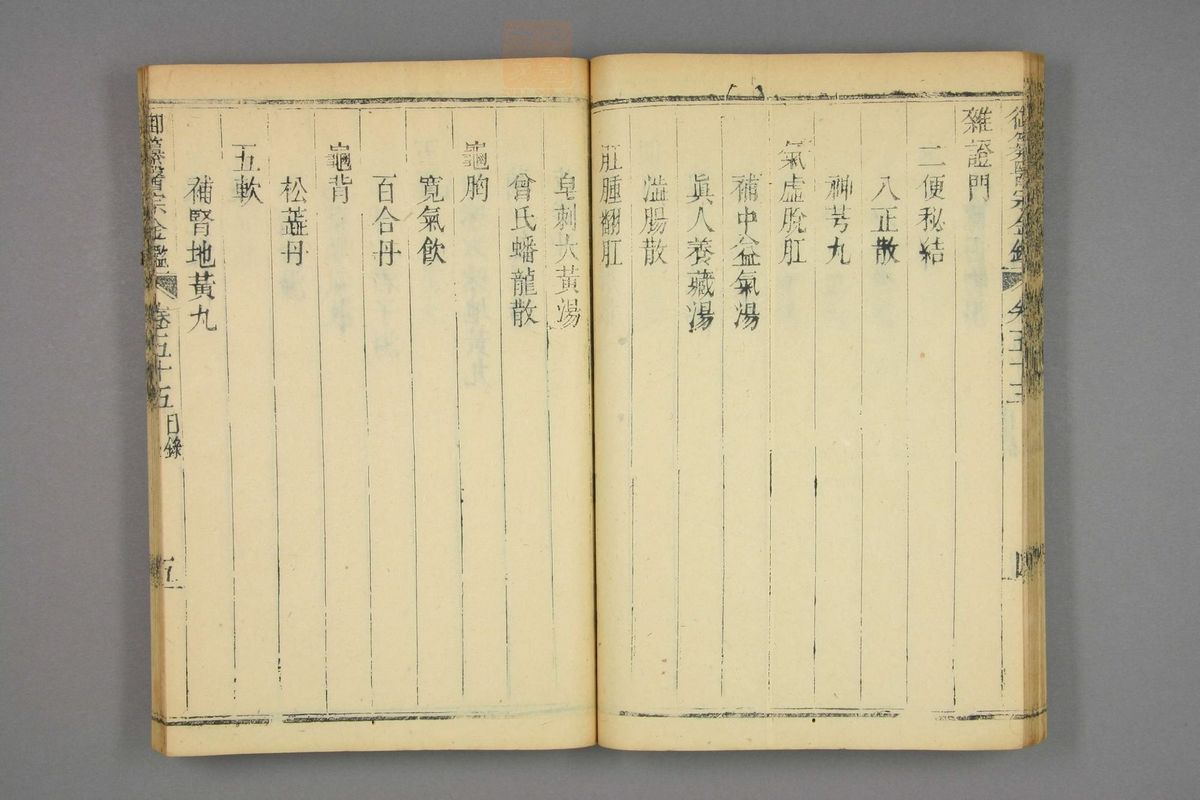 御纂醫宗金鑑 卷五十五 四
雜證門
二便秘結
八正散
神芎丸
氣虛脫肛
補中益氣湯
眞人養藏湯
滋腸散
肛腫翻肛
皂刺大黃湯
曾氏蟠龍散
龜胸
寬氣飲
百合丹
龜背
松蘂丹
五軟
補腎地黃丸
御纂醫宗金鑑 卷五十五 目錄 五